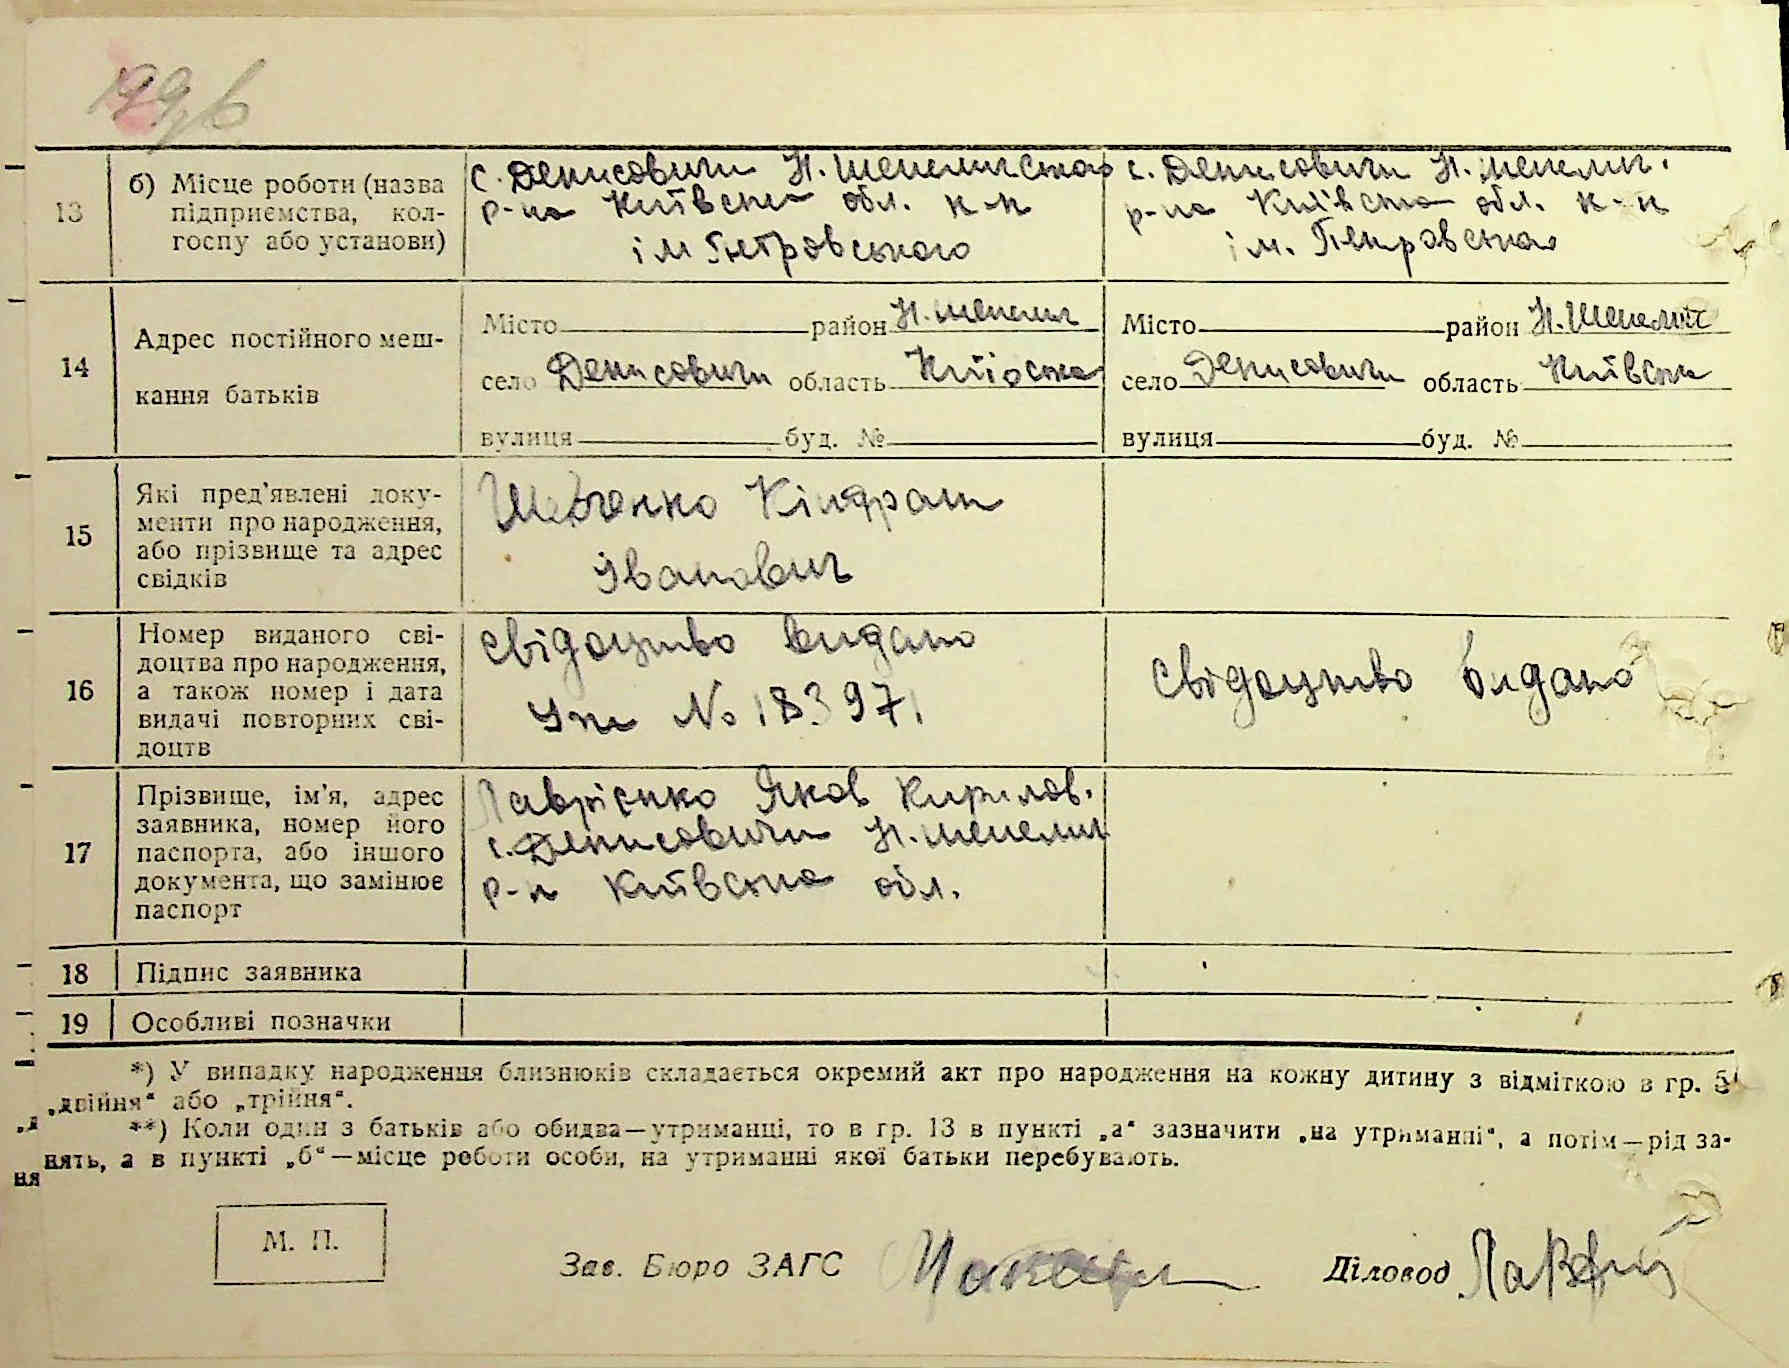 199 б
13 б) Місце роботи (назва підприємства, кол-
госпу або установи)
с. Денисовичи Н. Шепелическа
р-на Київська обл. к-п
ім Петровського
с. Денисовичи Н. Шепелич.
р-на Київська обл. к-п
ім. Петровська
14 Адрес постійного меш-
кання батьків
Місто район Н. Шепелич
село Денисовичи область Київська
вулиця буд. №
Місто район Н. Шепелич
село Денисовичи область Київська
вулиця буд. №
15 Які пред'явлені доку-
менти про народження,
або прізвище та адрес
свідків
Шевченко Кіндрат
Іванович
16 Номер виданого сві-
доцтва про народження,
а також номер і дата
видачі повторних сві-
доцтв
свідоцтво видано
№ 18397.
свідоцтво видано
17 Прізвище, ім'я, адрес
заявника, номер його
паспорта, або іншого
документа, що замінює
паспорт
Лаврієнко Яков Кирилов.
с. Денисовичи Н. Шепелич
р-н Київська обл.
18 Підпис заявника
19 Особливі позначки
*) У випадку народження близнюків складається окремий акт про народження на кожну дитину з відміткою в гр. 5
„двійня" або „трійня".
**) Коли один з батьків або обидва—утриманці, то в гр. 13 в пункті „а" зазначити „на утриманні", а потім—рід за-
нять, а в пункті „б"—місце роботи особи, на утриманні якої батьки перебувають.
М. П.
Зав. Бюро ЗАГС
Діловод